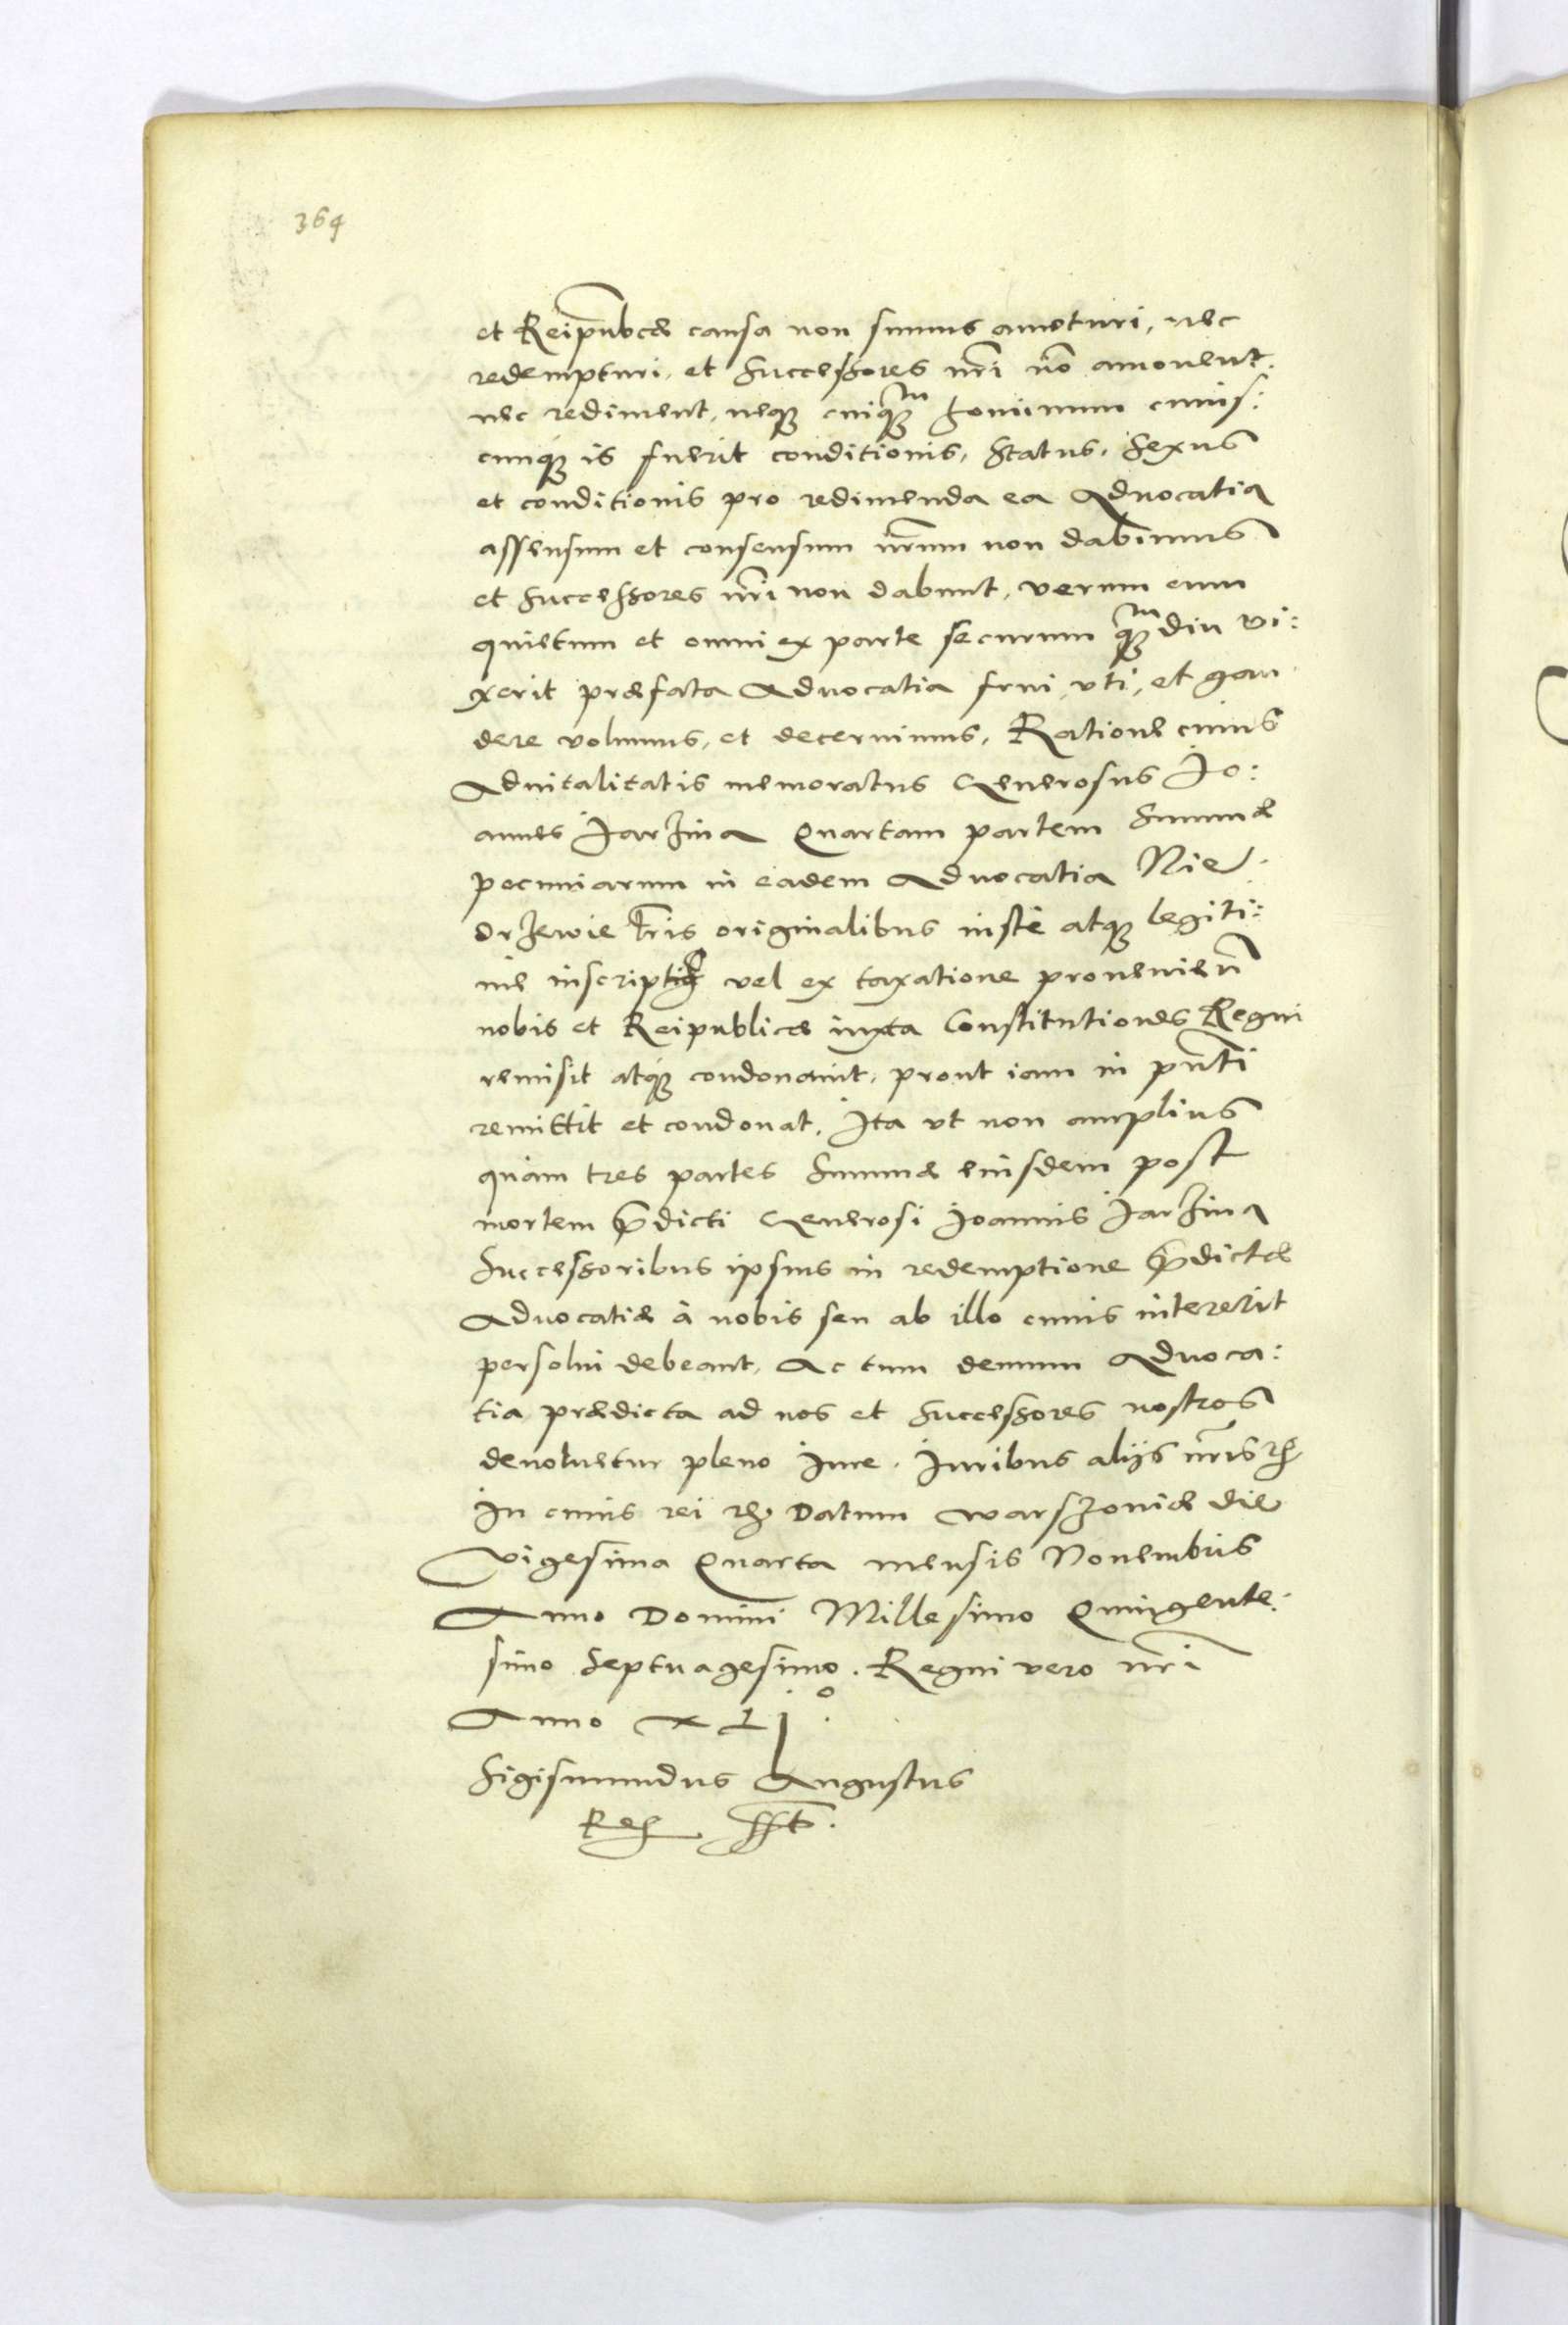 364
et Reipubcæ causa non sumus amoturi, nec
redempturi, et Successores nri no amouent.
nec rediment, neq3 cuiq3m hominum cuius:
cunq3 is fuerit conditionis, Status, Sexus
et conditionis pro redimenda ea Aduocatia
assensum et consensum nrum non dabimus
et Successores nri non dabunt, verum eum
quietum et omni ex parte securum q3m diu vi:
xerit præfata Aduocatia frui, vti, et gau
dere volumus, et decernimus, Ratione cuius
Aduitalitatis memoratus Generosus Jo:
annes Jarzina Quartam partem Summæ
pecuniarum in eadem Aduocatia Nie
drzewie tris originalibus iuste atq3 legiti:
me inscriptis vel ex taxatione prouenien
nobis et Reipublicæ iuxta Constitutiones Regni
remisit atq3 condonauit, prout iam in pnti
remittit et condonat, Ita vt non amplius
quàm tres partes Summæ eiusdem post
mortem p̃dicti Generosi Joannis Jarzina
Successoribus ipsius in redemptione p̃dictæ
Aduocatiæ à nobis seu ab illo cuius intererit
persolui debeant, Ac tum demum Aduoca:
tia prædicta ad nos et Successores nostros
deuoluetur pleno iure. Juribus alijs nris etc
In cuius rei etc Datum Warszouiæ die
Vigesima Quarta mensis Nouembris
Anno Domini Millesimo Quingente:
simo Septuagesimo. Regni vero nri
Anno xLjº.
Sigismundus Augustus
Rex sst.